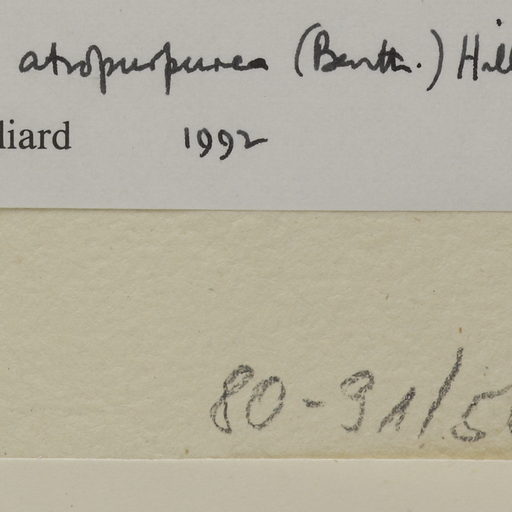 atropurpurea (Benth.) Hill
liard 1992
80-91/5